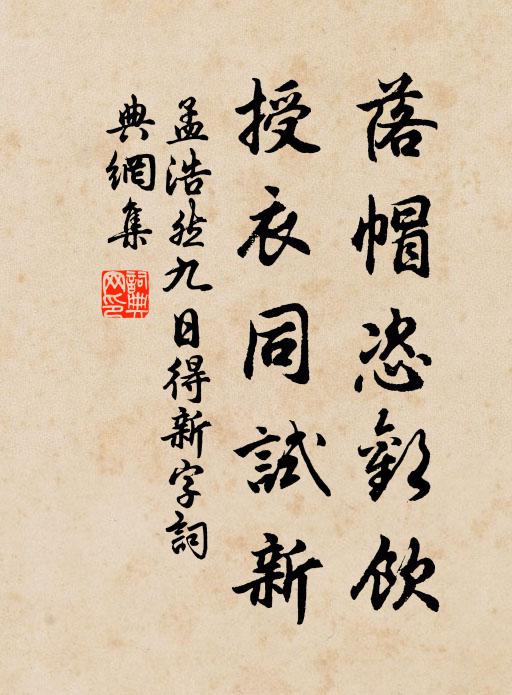 落帽恣歡飲
授衣同試新
孟浩然九日得新字詞
典網集
詞典網印